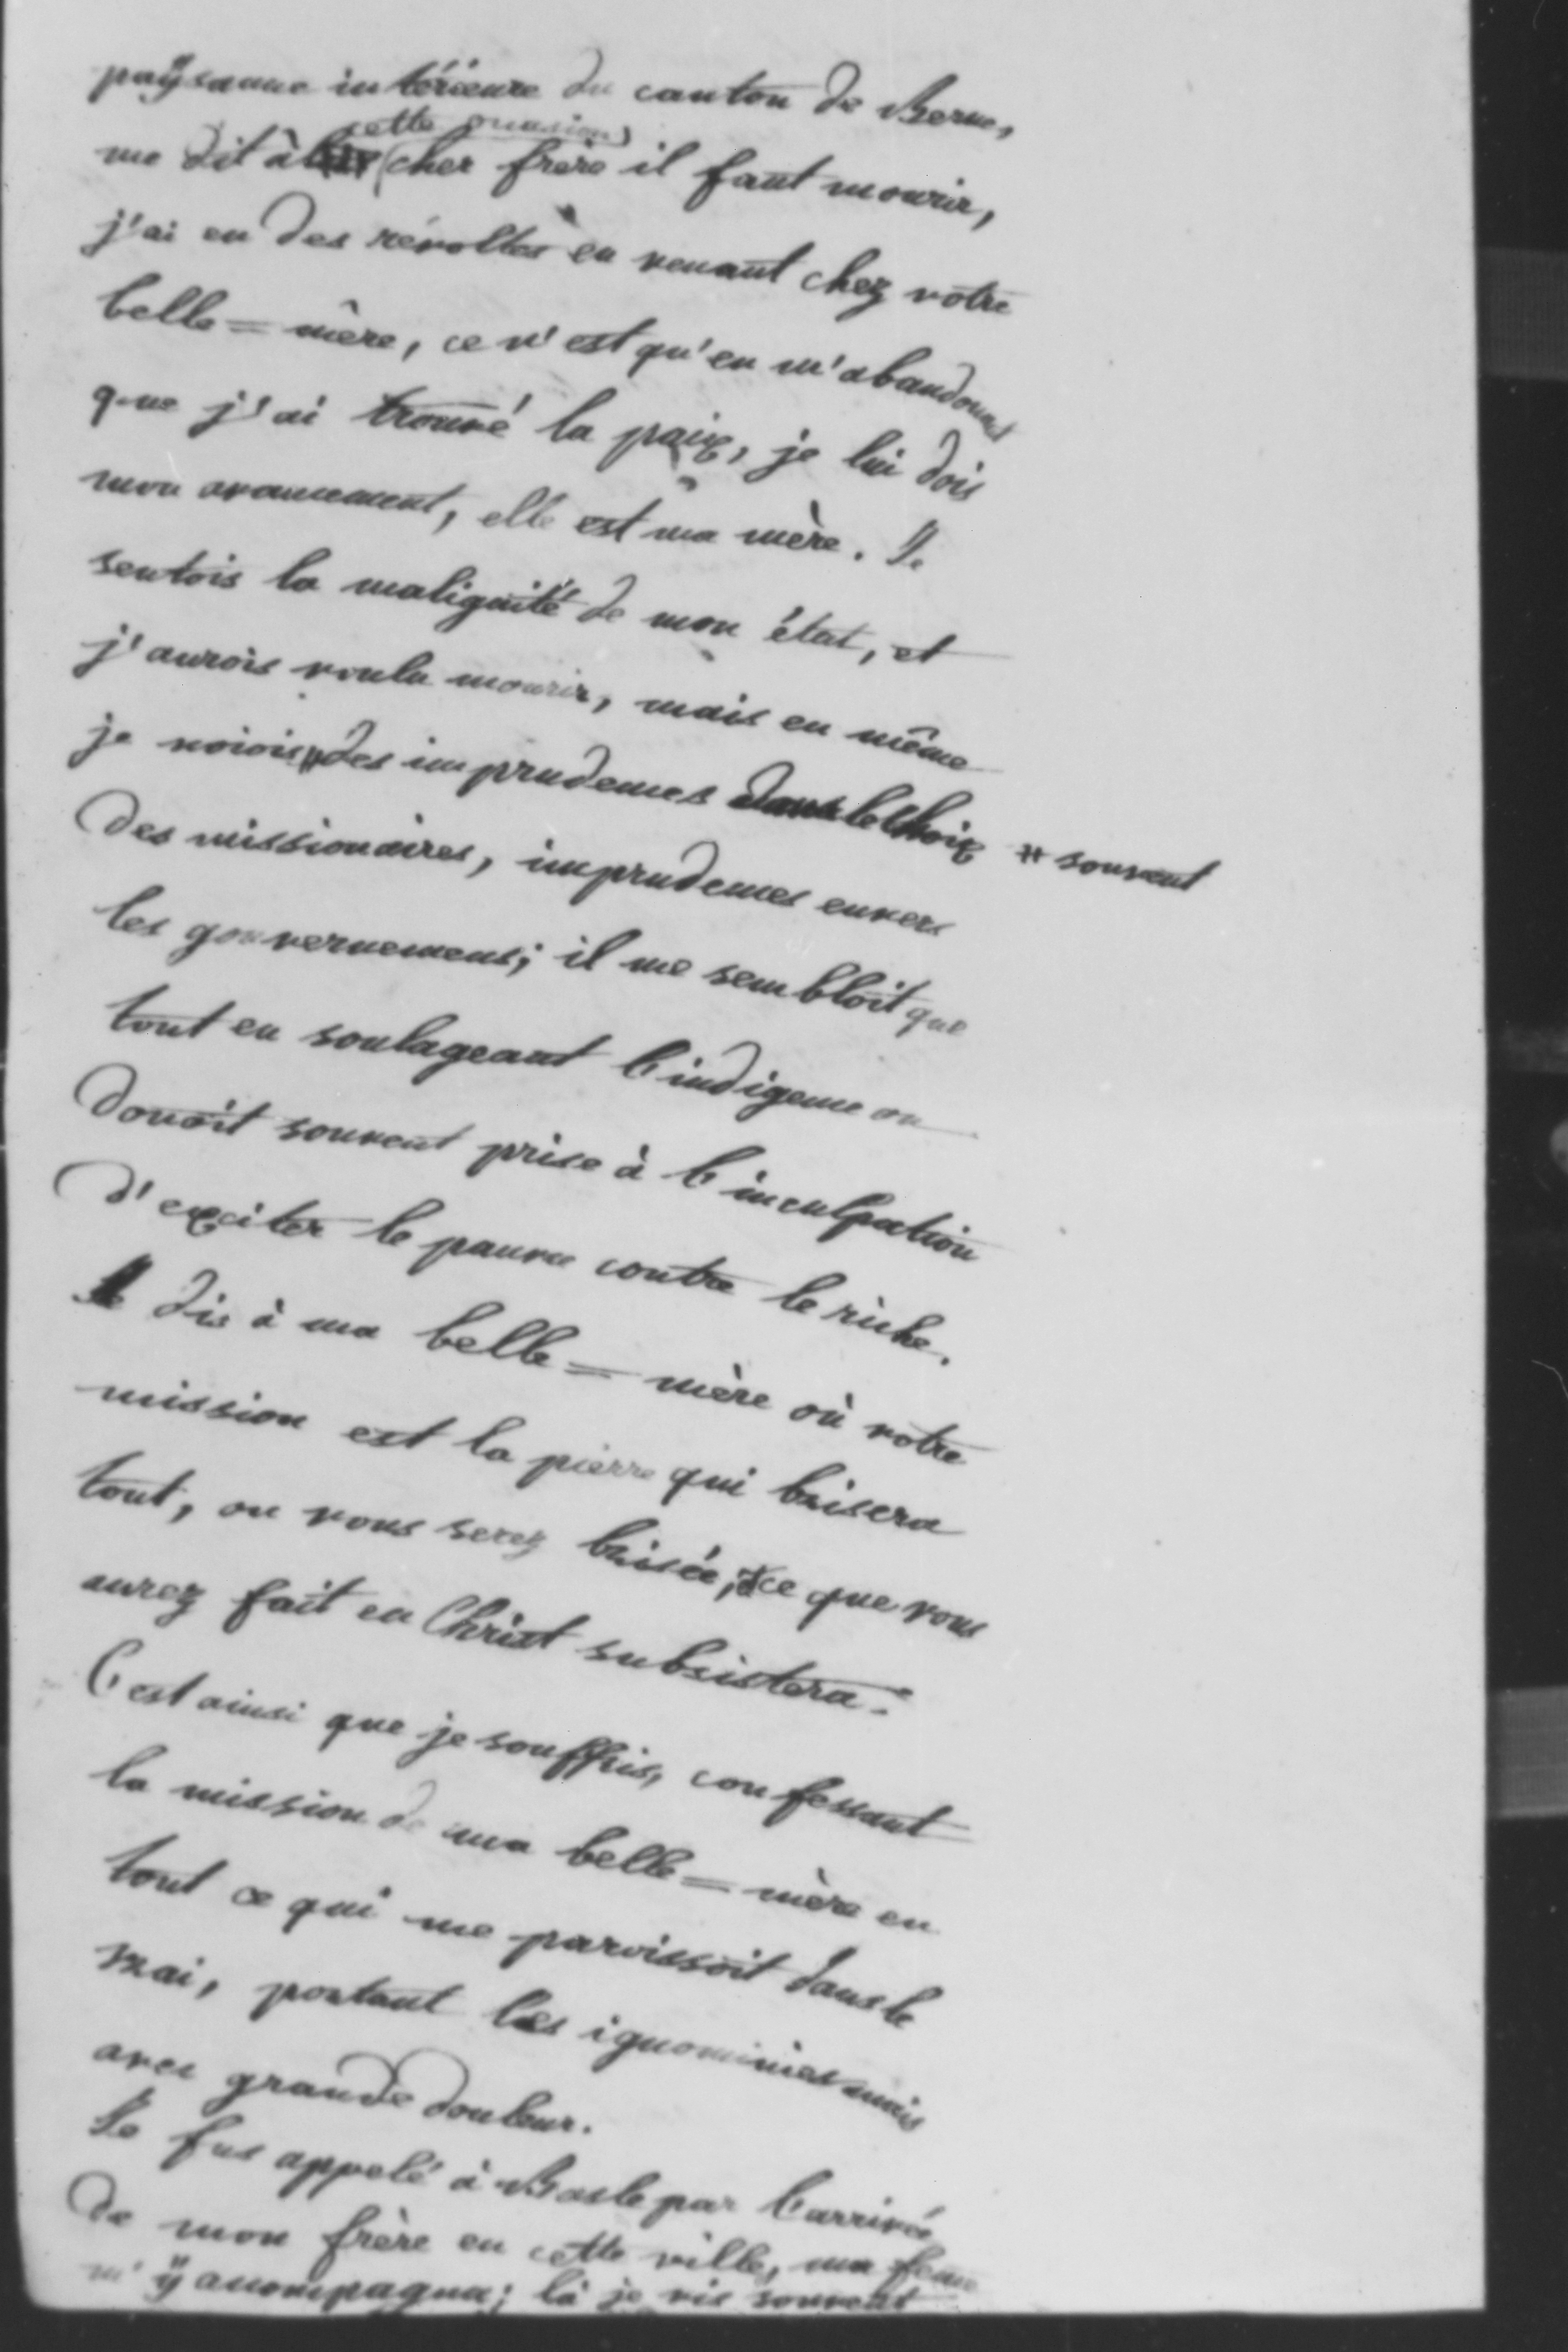 paÿsanne intérieure du canton de Berne,
cette occasion
me dit à cher frère il faut mourir,
j'ai eu des révoltes en venant chez votre
belle=mère, ce n'est qu'en m'abandonnant
que j'ai trouvé la paix, je lui dois
mon avancement, elle est ma mère. Je
sentois la malignité de mon état, et
j'aurois voulu mourir, mais en même
je voiois # des imprudences dans le choix # souvent
des missionaires, imprudences envers
les gouvernemens; il me sembloit que
tout en soulageant l'indigence on
donoit souvent prise à l'inculpation
d'exciter le pauvre contre le riche.
Je dis à ma belle=mère où votre
mission est la pierre qui brisera
tout, ou vous serez brisée, & ce que vous
aurez fait en Christ subsistera.
C'est ainsi que je souffris, confessant
la mission de ma belle=mère en
tout ce qui me paroissoit dans le
vrai, portant les ignominies mais
avec grande douleur.
Je fus appelé à Basle par l'arrivée
de mon frère en cette ville, ma feme
m'ÿ accompagna; là je vis souvent